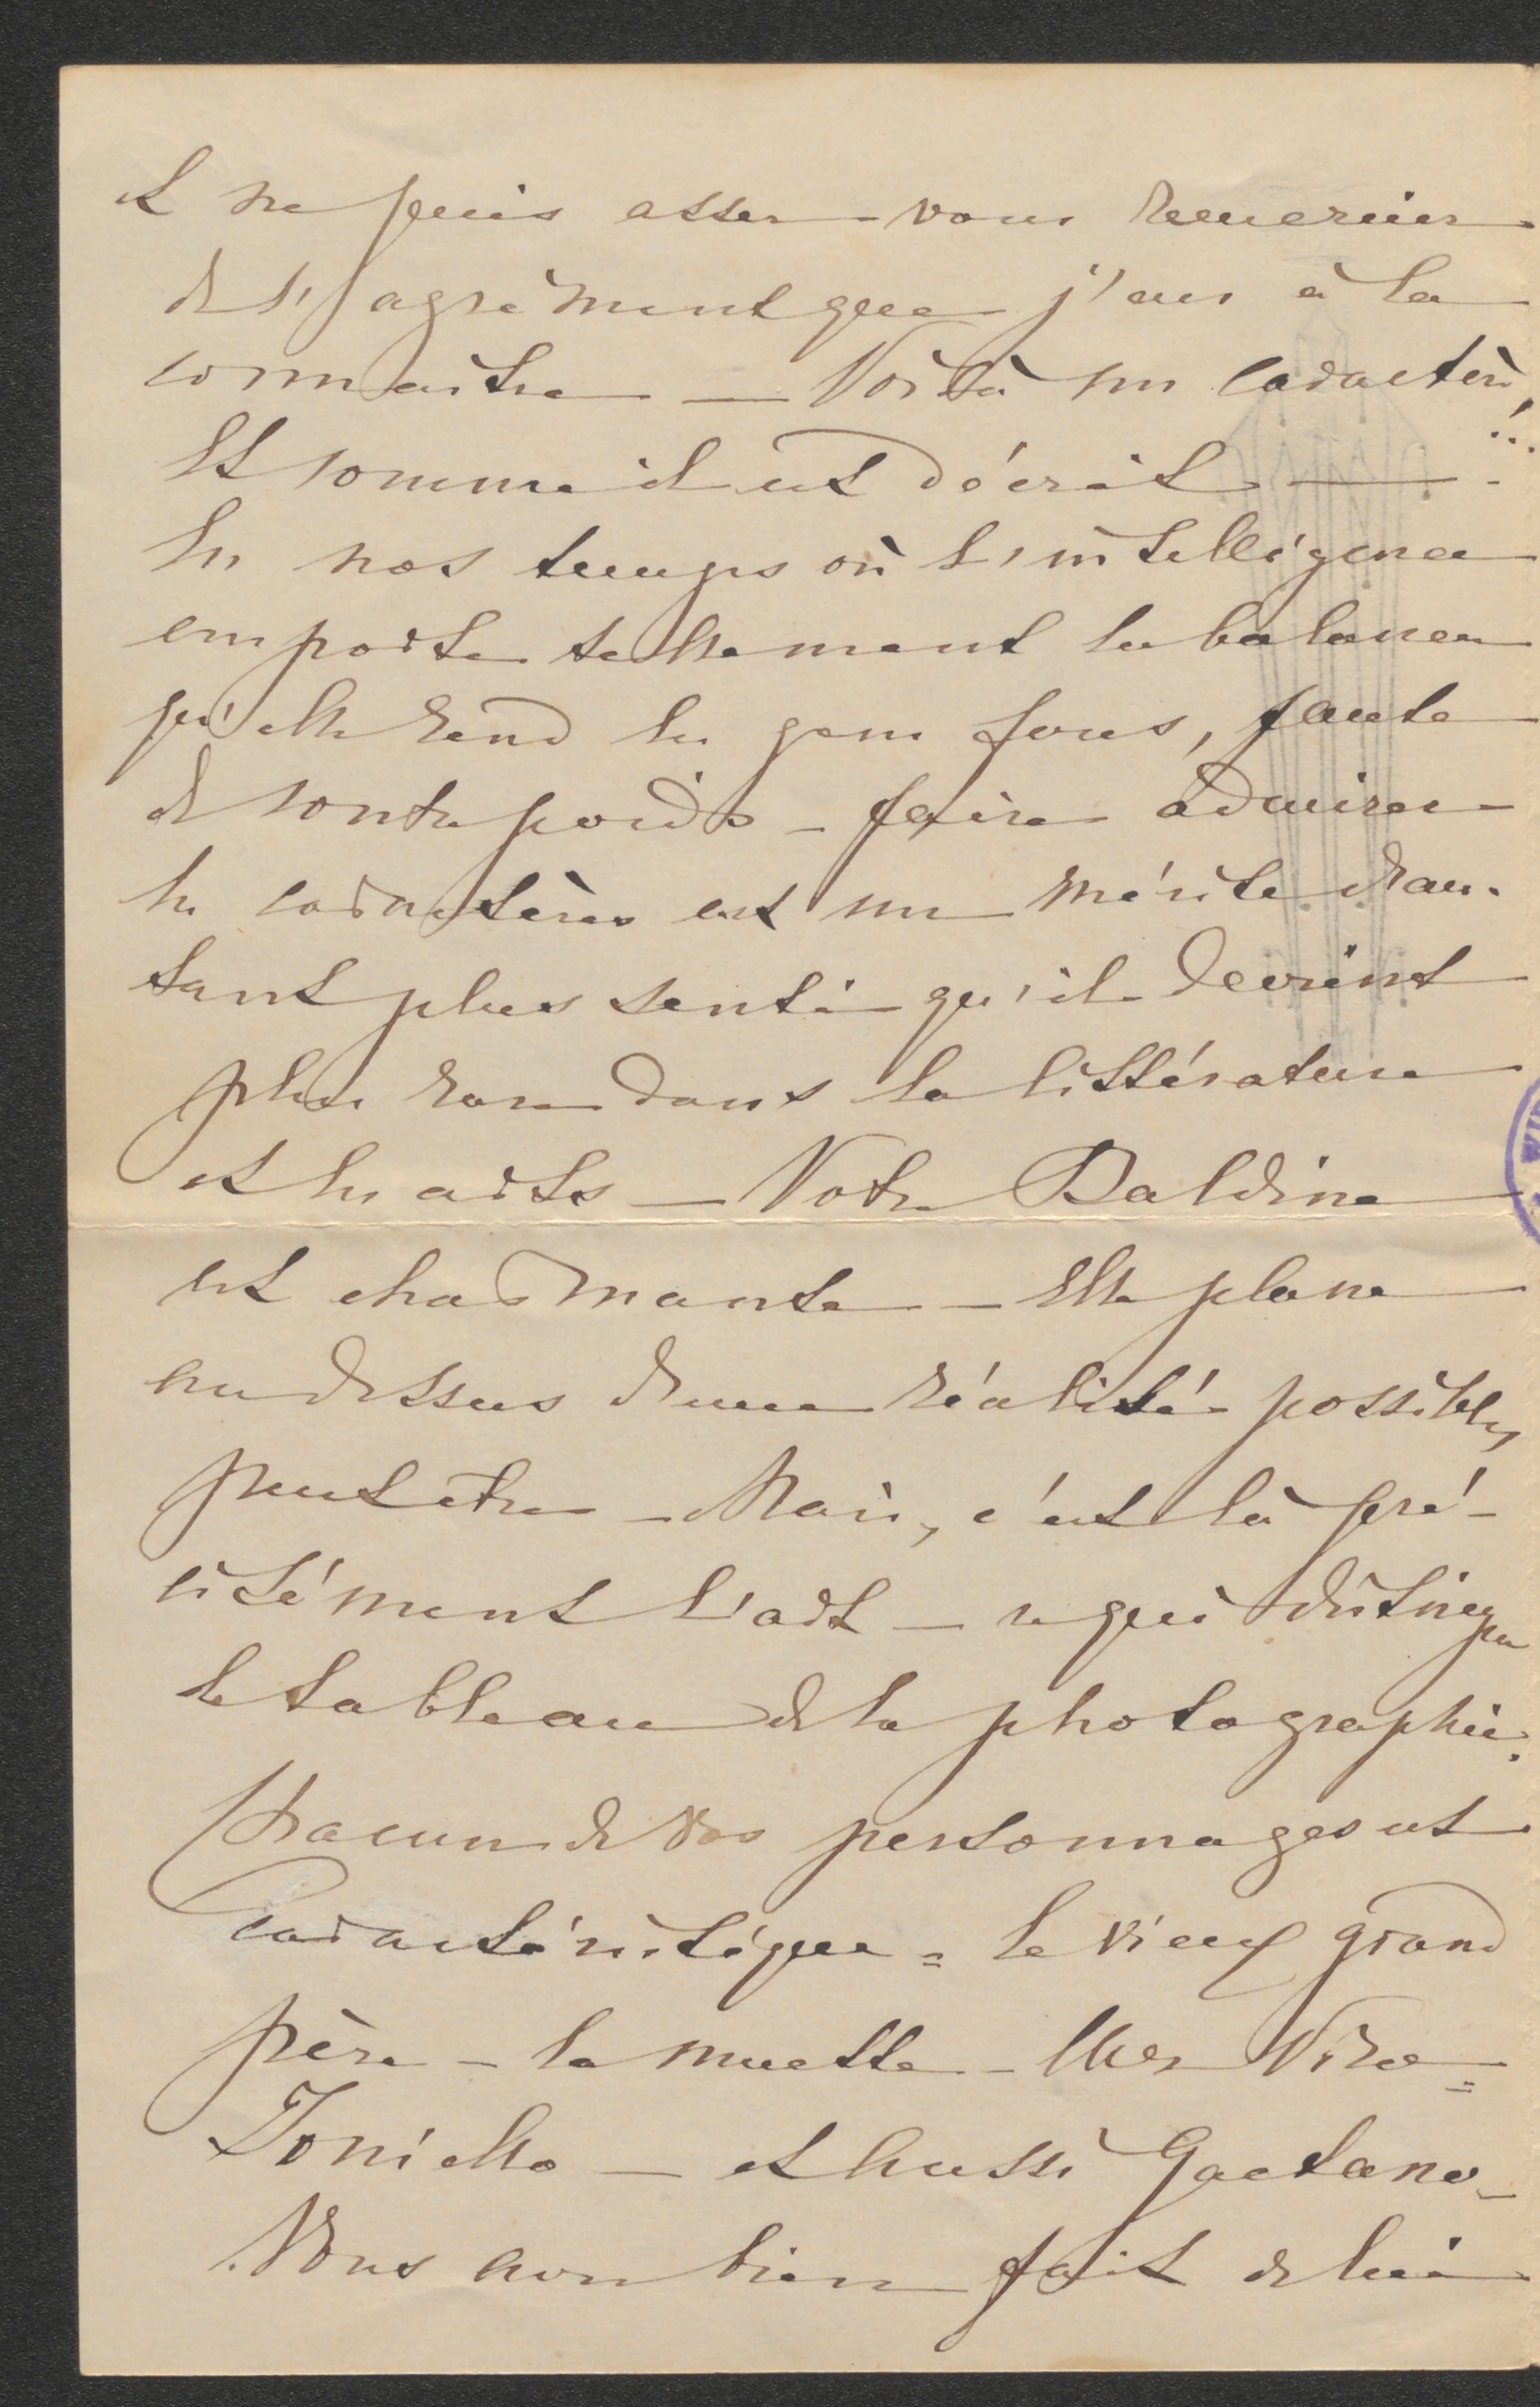 et ne puis assez vous remercier
de l'agrément que j'eus à la
connaître — Voilà un caractère,
Et comme il est décrit — !...
En nos temps où l'intelligence
emporte tellement la balance
qu'elle rend les gens fous, faute
de contrepoids – faire admirer
les caractères est un mérite d'au-
tant plus senti qu'il devient
plus rare dans la littérature
et les arts — Votre Baldine
est charmante — Elle plane
au dessus d'une réalité possible,
peut être – Mais, c'est là pré-
cisément l'art — ce qui distingue
le tableau de la photographie.
Chacun de vos personnages est
caractéristique = le vieux grand
père – la muette –
Toniello — et aussi Gaetano –
Vous avez bien fait de lui